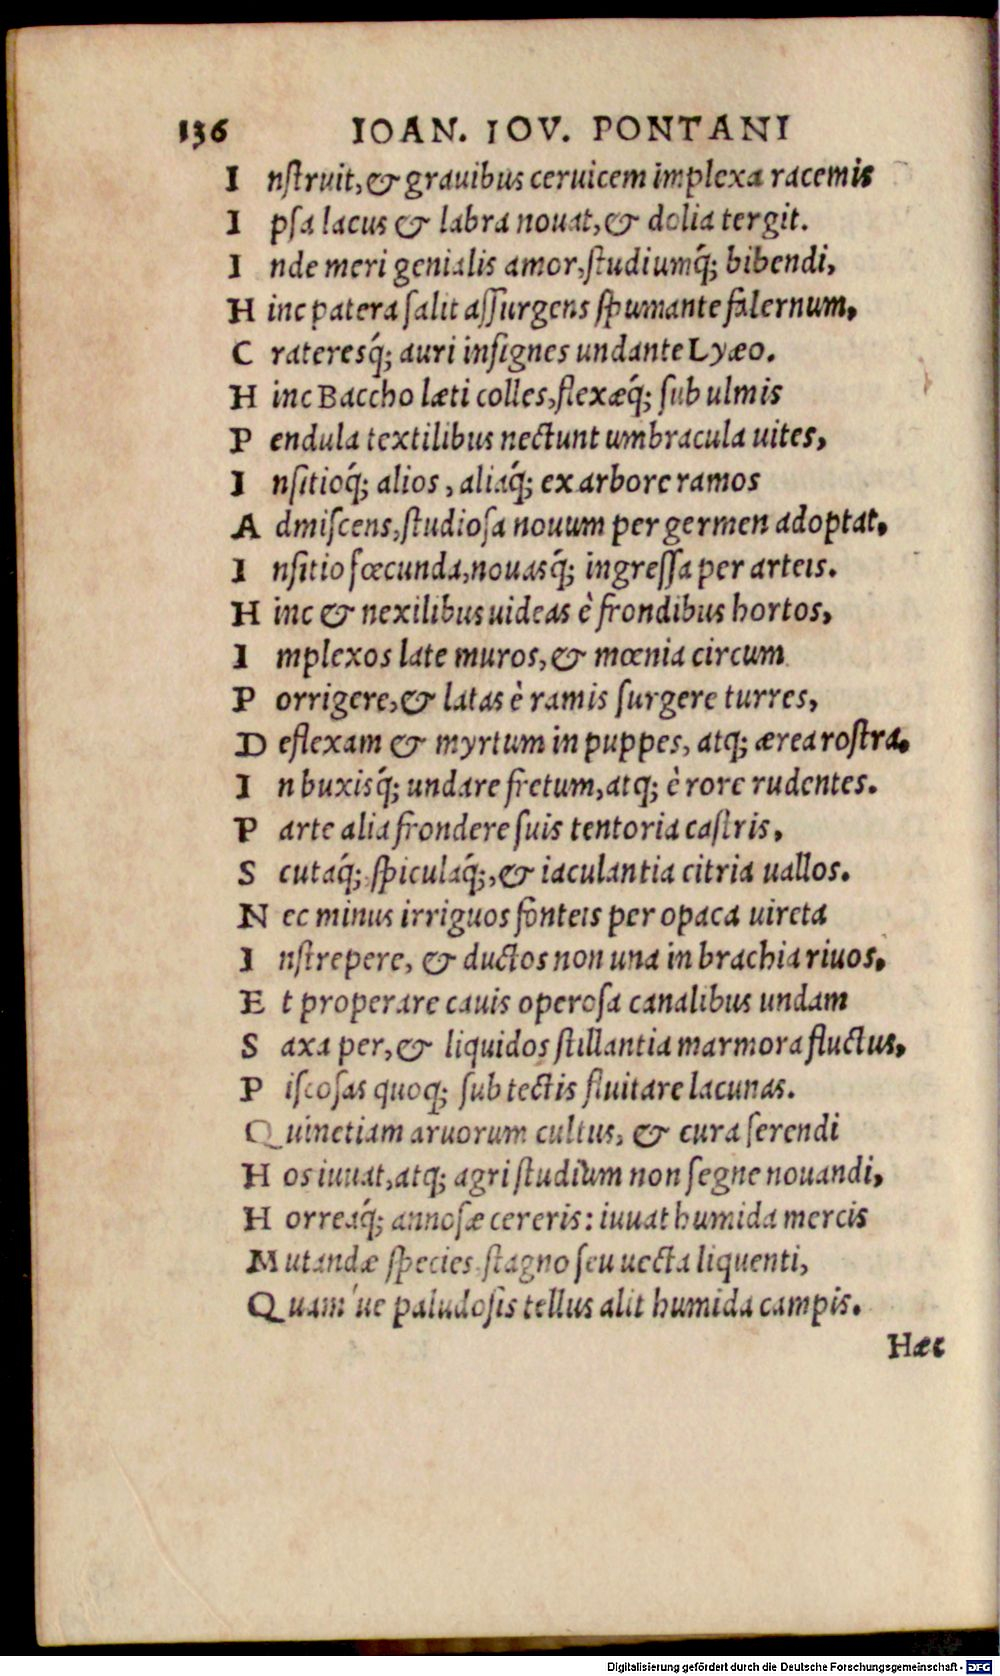 136 IOAN. IOV. PONTANI
I nſtruit, & grauibus ceruicem implexa racemis
I pſa lacus & labra nouat, & dolia tergit.
I nde meri genialis amor, ſtudiumq́; bibendi,
H inc patera ſalit aſſurgens ſpumante falernum,
C rateresq́; auri inſignes undante Lyæo.
H inc Baccho læti colles, flexæq́; ſub ulmis
P endula textilibus nectunt umbracula uites,
I nſitioq́; alios, aliaq́; ex arbore ramos
A dmiſcens, ſtudioſa nouum per germen adoptat,
I nſitio fœcunda, nouasq́; ingreſſa per arteis.
H inc & nexilibus uideas è frondibus hortos,
I mplexos late muros, & mœnia circum
P orrigere, & latas è ramis ſurgere turres,
D eflexam & myrtum in puppes, atq; ærea roſtra.
I n buxisq́; undare fretum, atq; è rore rudentes.
P arte alia frondere ſuis tentoria caſtris,
S cutaq́; ſpiculaq́;, & iaculantia citria uallos.
N ec minus irriguos fonteis per opaca uireta
I nſtrepere, & ductos non una in brachia riuos,
E t properare cauis operoſa canalibus undam
S axa per, & liquidos ſtillantia marmora fluctus,
P iſcoſas quoq; ſub tectis fluitare lacunas.
Q uinetiam aruorum cultus, & cura ſerendi
H os iuuat, atq; agri ſtudium non ſegne nouandi,
H orreaq́; annoſæ cereris: iuuat humida mercis
M utandæ ſpecies ſtagno ſeu uecta liquenti,
Q uam'ue paludoſis tellus alit humida campis.
Hæc
Digitalisierung gefördert durch die Deutsche Forschungsgemeinschaft - DFG